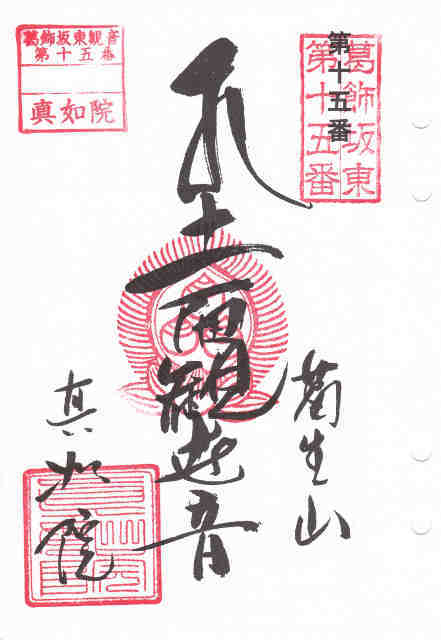 第十五番
葛飾坂東
第十五番
生山
十一面観世音
真如院
葛飾坂東観音
第十五番
真如院